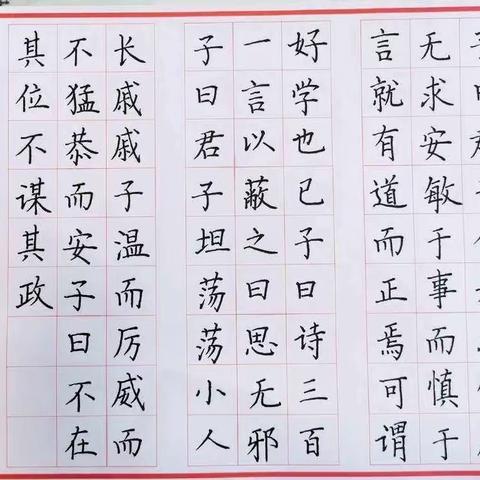 无求安敏于事而慎于
言就有道而正焉可谓
好学也已子曰诗三百
一言以蔽之曰思无邪
子曰君子坦荡荡小人
长戚戚子温而厉威而
不猛恭而安子曰不在
其位不谋其政